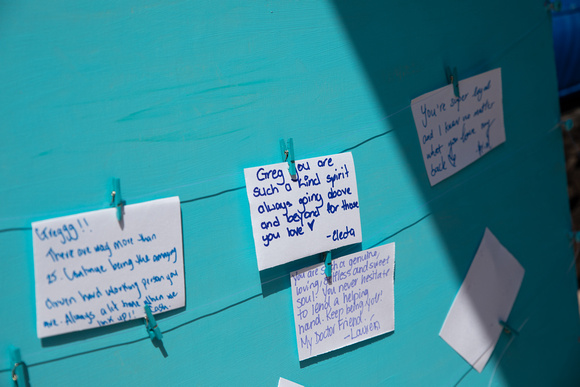 Greggg!!
There are way more than
15 Coatmae being the amazing
driven hard working person you
are. Always a lit here when we
link up!!
Greg you are
such a kind spirit
always going above
and beyond for those
you love ♥
-electa
You are such a genuine,
loving, selfless and sweet
soul! You never hesitate
to lend a helping
hand. Keep being you!
My Doctor Friend.
-Lauren
You're super loyal
and I know no matter
what you have my
back